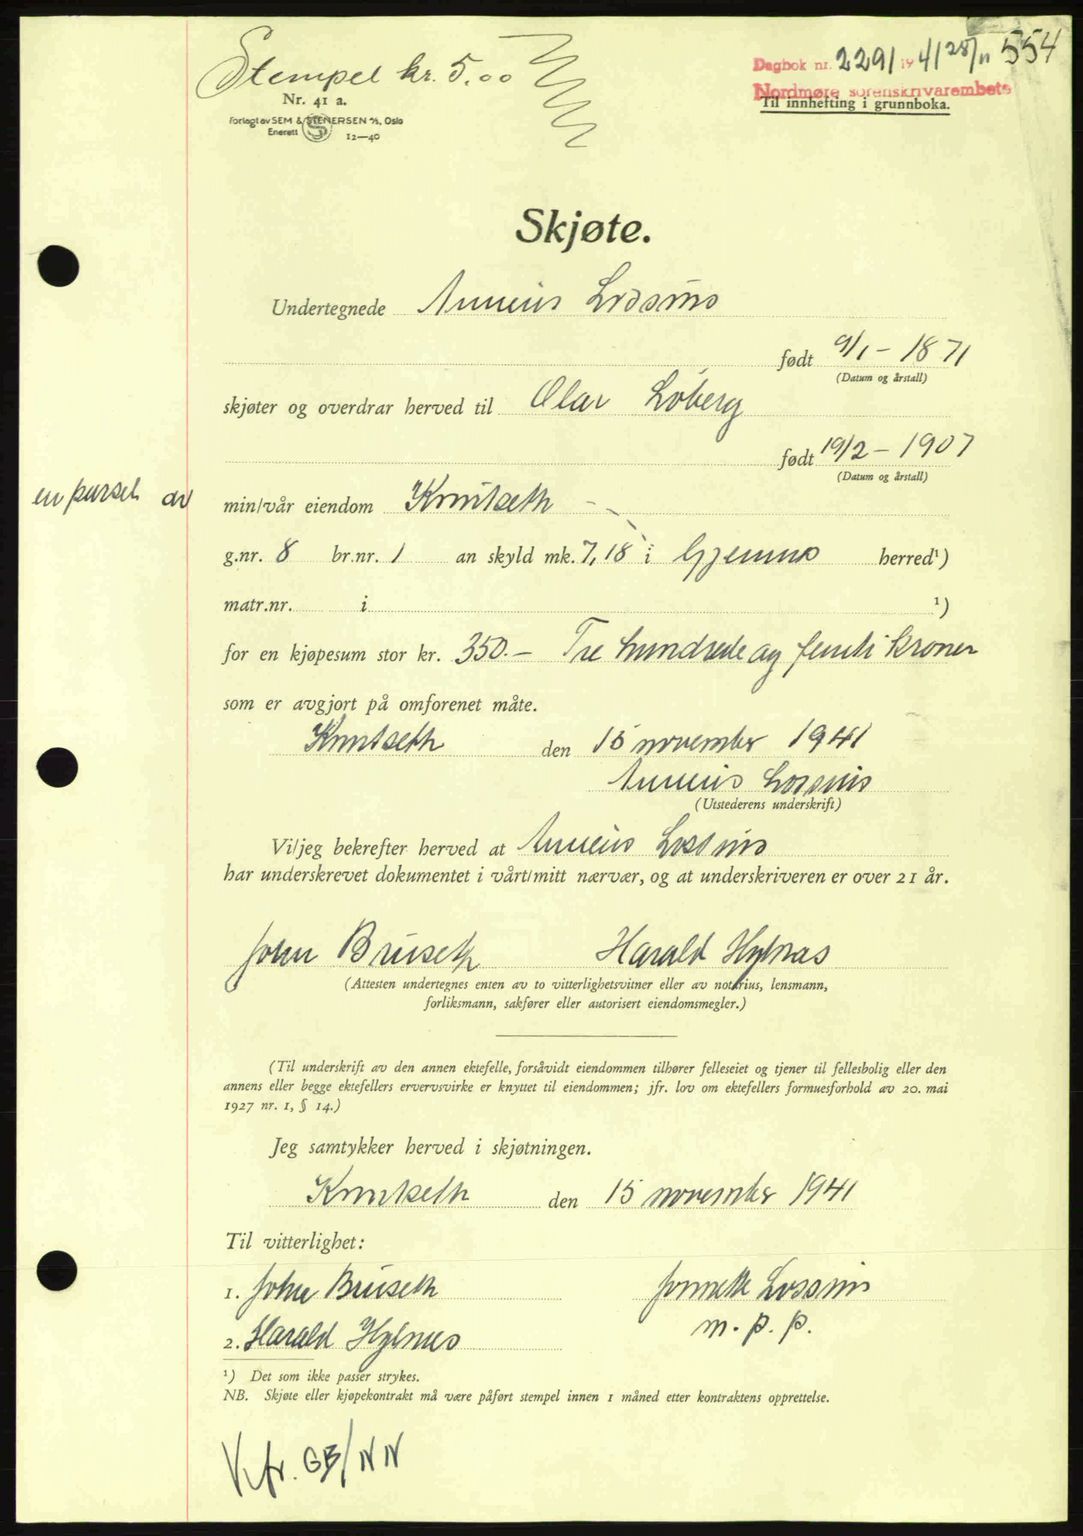 Stempel kr. 5.00
Nr. 41 a.
Forlagt av SEM & STENERSEN A/S, Oslo
Enerett S 12—40
Dagbok nr. 2291 1941 28/11 554
Nordmøre sorenskriverembete
Til innhefting i grunnboka.
Skjøte.
Undertegnede Anneus
født 9/1 - 1871
(Datum og årstall)
skjøter og overdrar herved til Olav Løberg
født 19/2 - 1907
(Datum og årstall)
en parsel av min/vår eiendom Knutseth
g.nr. 8 br.nr. 1 an skyld mk. 7,18 i Gjemnes herred¹)
matr.nr. i ¹)
for en kjøpesum stor kr. 350.- Tre hundrede og femti kroner
som er avgjort på omforenet måte.
Knutseth den 15 november 1941
Anneus
(Utstederens underskrift)
Vi/jeg bekrefter herved at Anneus
har underskrevet dokumentet i vårt/mitt nærvær, og at underskriveren er over 21 år.
John Bruseth Harald Hylnes
(Attesten undertegnes enten av to vitterlighetsvitner eller av notarius, lensmann,
forliksmann, sakfører eller autorisert eiendomsmegler.)
(Til underskrift av den annen ektefelle, forsåvidt eiendommen tilhører felleseiet og tjener til fellesbolig eller den
annens eller begge ektefellers ervervsvirke er knyttet til eiendommen; jfr. lov om ektefellers formuesforhold av 20. mai
1927 nr. 1, § 14.)
Jeg samtykker herved i skjøtningen.
Knutseth den 15 november 1941
Til vitterlighet:
1. John Bruseth
m. p. p.
2. Harald Hylnes
¹) Det som ikke passer strykes.
NB. Skjøte eller kjøpekontrakt må være påført stempel innen 1 måned etter kontraktens opprettelse.
V. fr. GB/NN